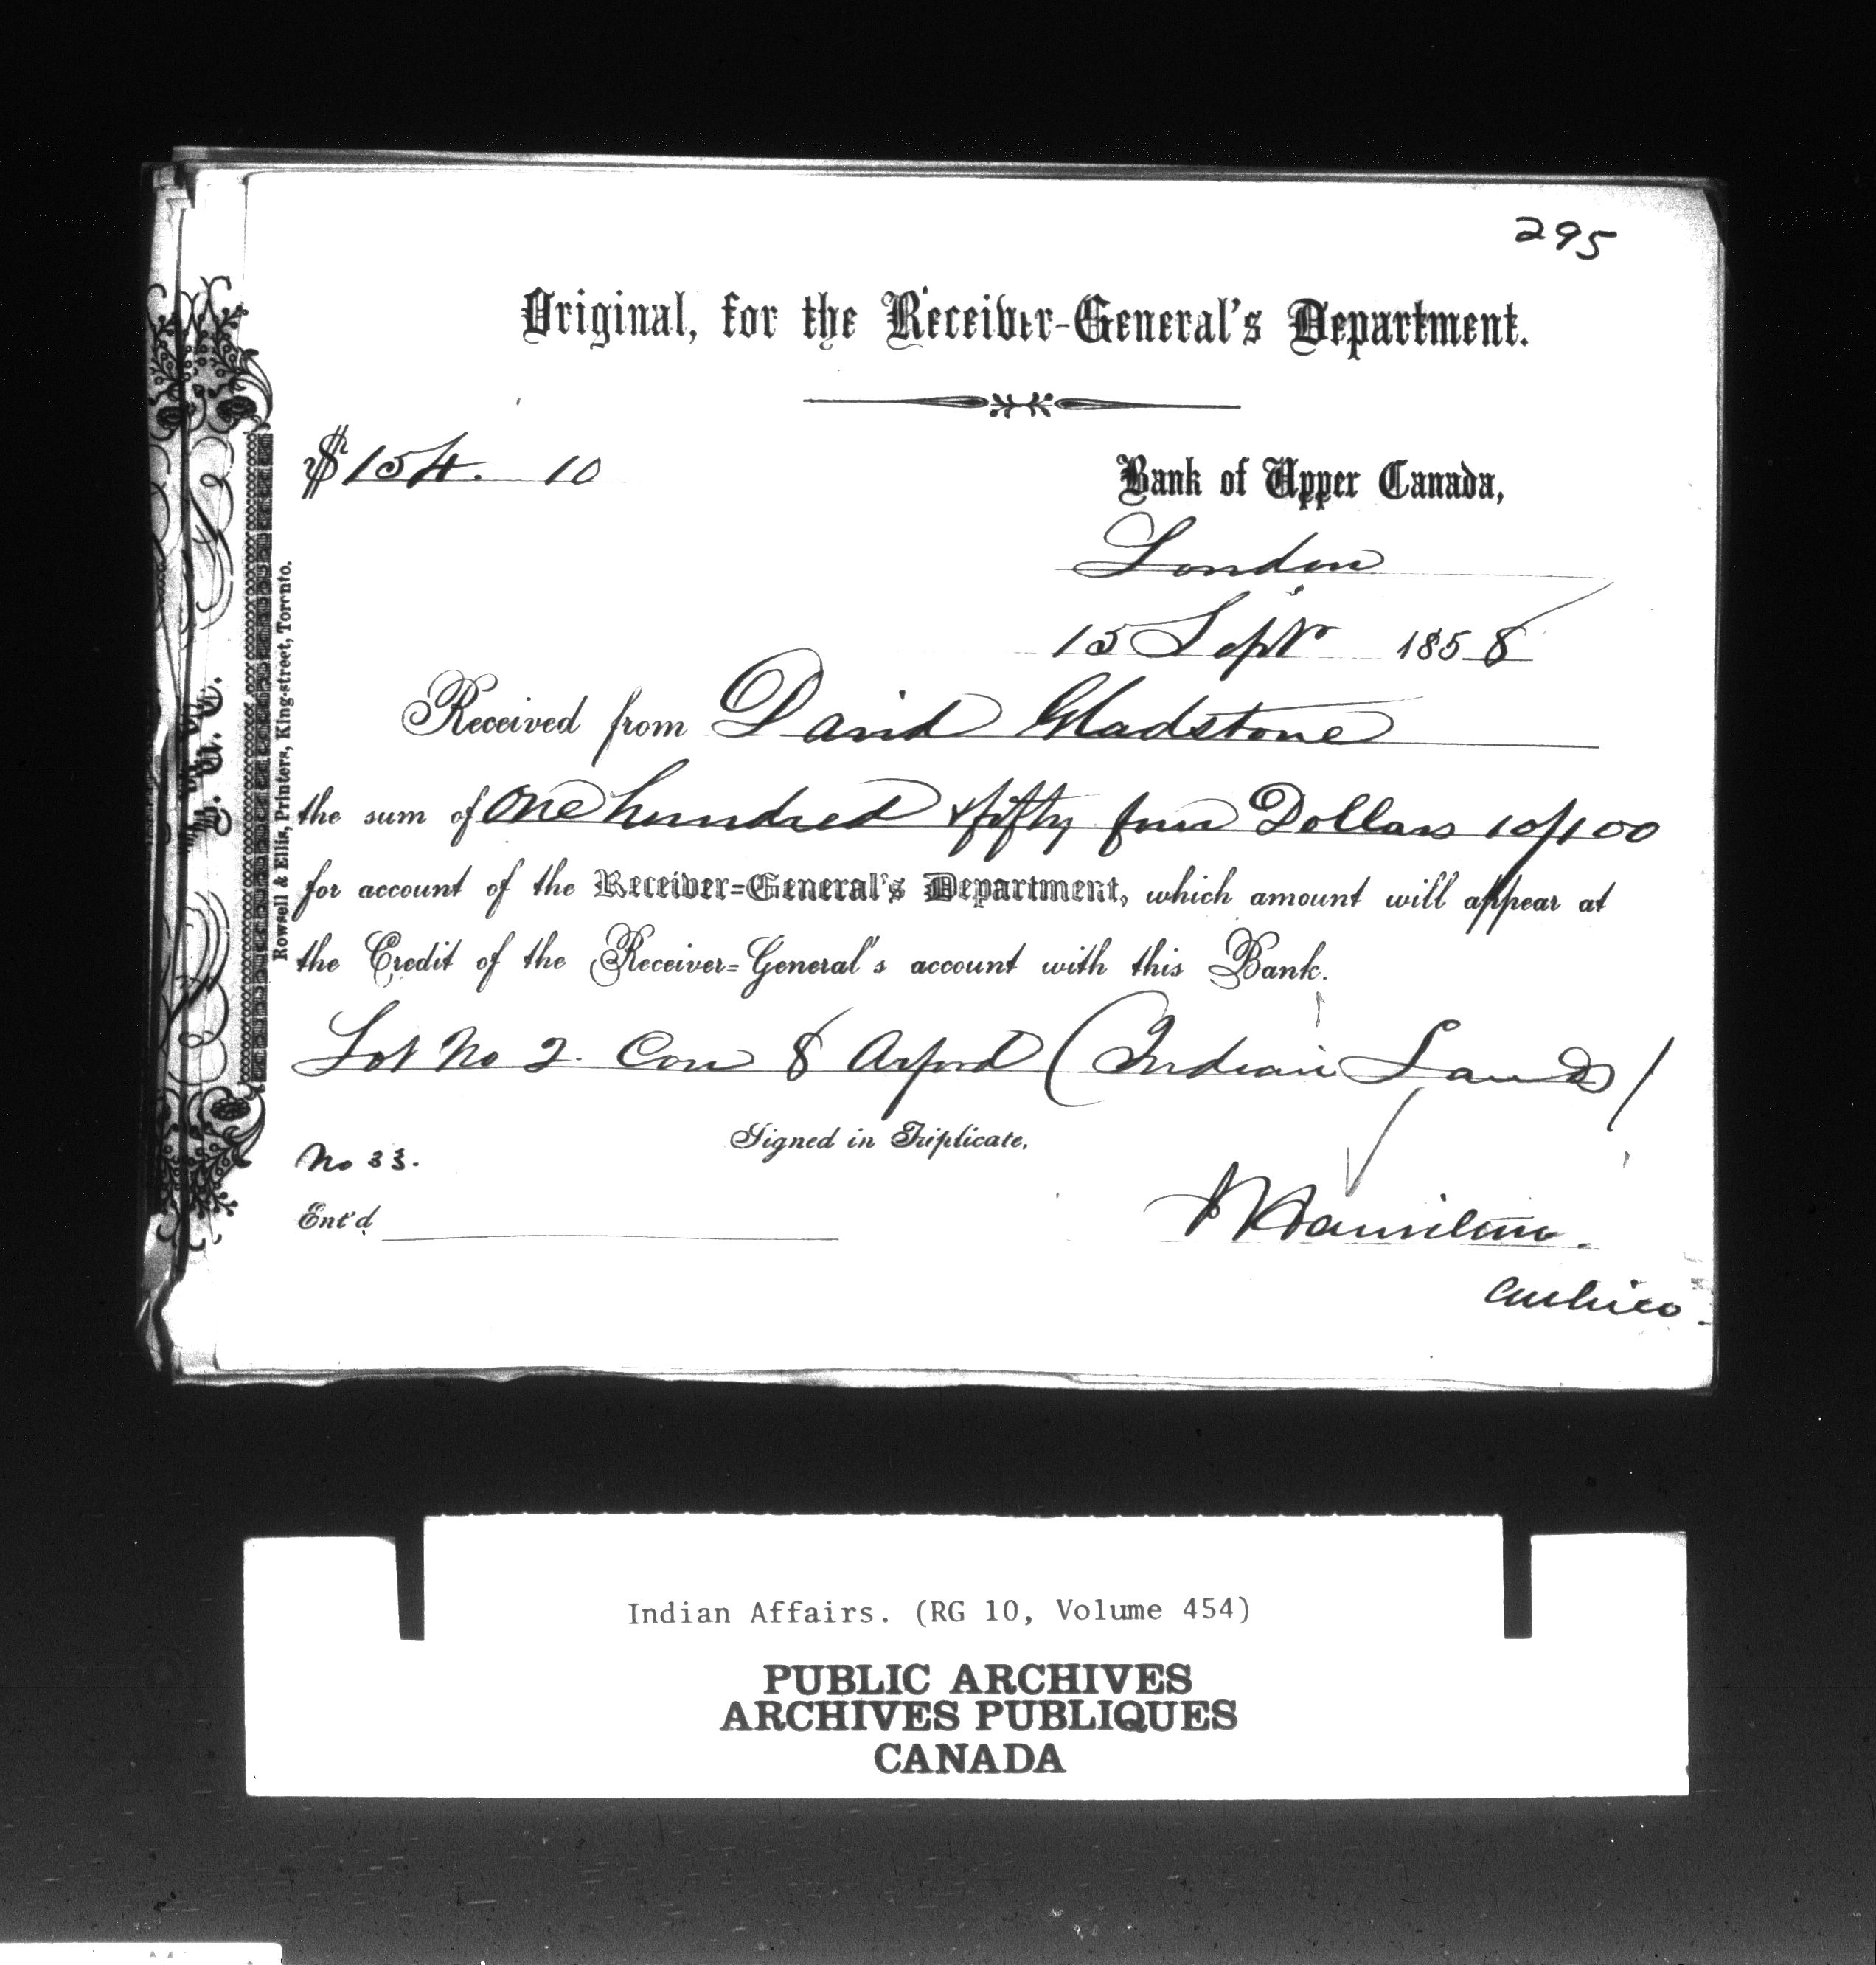 295
Original, for the Receiver-General's Department.
$154. 10
Bank of Upper Canada,
London
15 Septr 1858
Received from David Gladstone
the sum of One hundred & fifty four Dollars 10/100
for account of the Receiver=General's Department, which amount will appear at
the Credit of the Receiver=General's account with this Bank.
Lot No 2. Con 8 Arford (Indian Lands)
Signed in Triplicate,
No 33.
Ent'd
Hamilton.
Cashier
Rowsell & Ellis, Printers, King-street, Toronto.
Indian Affairs. (RG 10, Volume 454)
PUBLIC ARCHIVES
ARCHIVES PUBLIQUES
CANADA